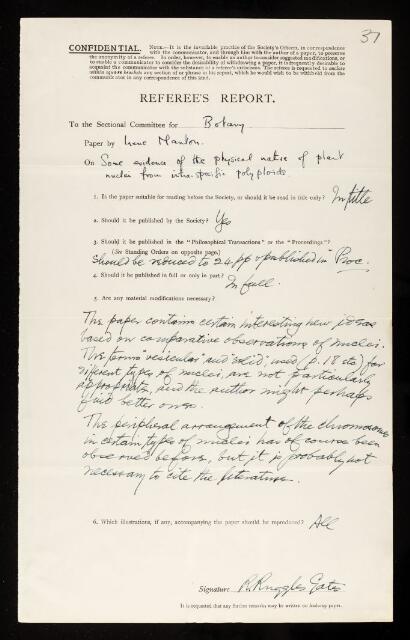 37
CONFIDENTIAL. NOTE.—It is the invariable practice of the Society's Officers, in correspondence
with the communicator, and through him with the author of a paper, to preserve
the anonymity of a referee. In order, however, to enable an author to consider suggested modifications, or
to enable a communicator to consider the desirability of withdrawing a paper, it is frequently desirable to
acquaint the communicator with the substance of a referee's criticisms. The referee is requested to enclose
within square brackets any section of or phrase in his report, which he would wish to be withheld from the
communicator in any correspondence of this kind.
REFEREE'S REPORT.
To the Sectional Committee for Botany
Paper by Irene Manton.
On Some evidence of the physical nature of plant
nuclei from intra-specific polyploids
1. Is the paper suitable for reading before the Society, or should it be read in title only? In title
2. Should it be published by the Society? Yes
3. Should it be published in the "Philosophical Transactions" or the "Proceedings"?
(See Standing Orders on opposite page.)
Should be reduced to 24 pp & published in Proc.
4. Should it be published in full or only in part? In full.
5. Are any material modifications necessary?
The paper contains certain interesting new ideas
based on comparative observations of nuclei.
The terms "vesicular" and "solid", used (p. 18 etc) for
different types of nuclei, are not particularly
appropriate, and the author might perhaps
find better ones.
The peripheral arrangement of the chromosomes
in certain types of nuclei has of course been
observed before, but it is probably not
necessary to cite the literature.
6. Which illustrations, if any, accompanying the paper should be reproduced? All
Signature R. Ruggles Gates
It is requested that any further remarks may be written on foolscap paper.